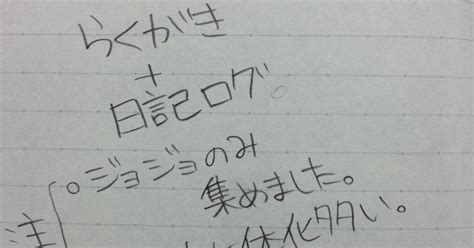 らくがき
+
日記ログ。
。ジョジョのみ
集めました。
注
体化多い。